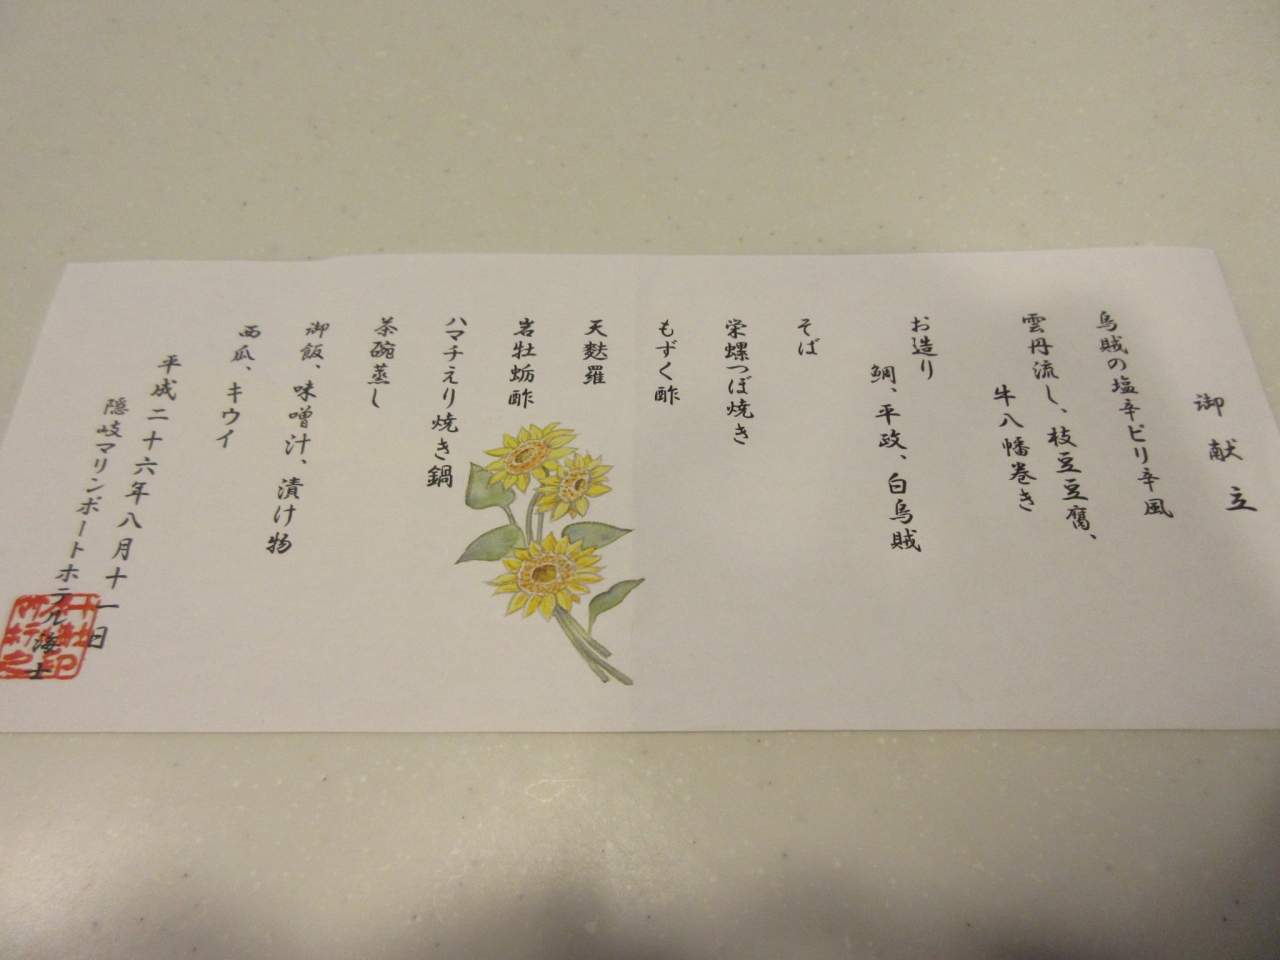 御献立
烏賊の塩辛ピリ辛風
雲丹流し、枝豆豆腐、
牛八幡巻き
お造り
鯛、平政、白烏賊
そば
栄螺つぼ焼き
もずく酢
天麩羅
岩牡蛎酢
ハマチえり焼き鍋
茶碗蒸し
御飯、味噌汁、漬け物
西瓜、キウイ
平成二十六年八月十一日
隠岐マリンポートホテル海士